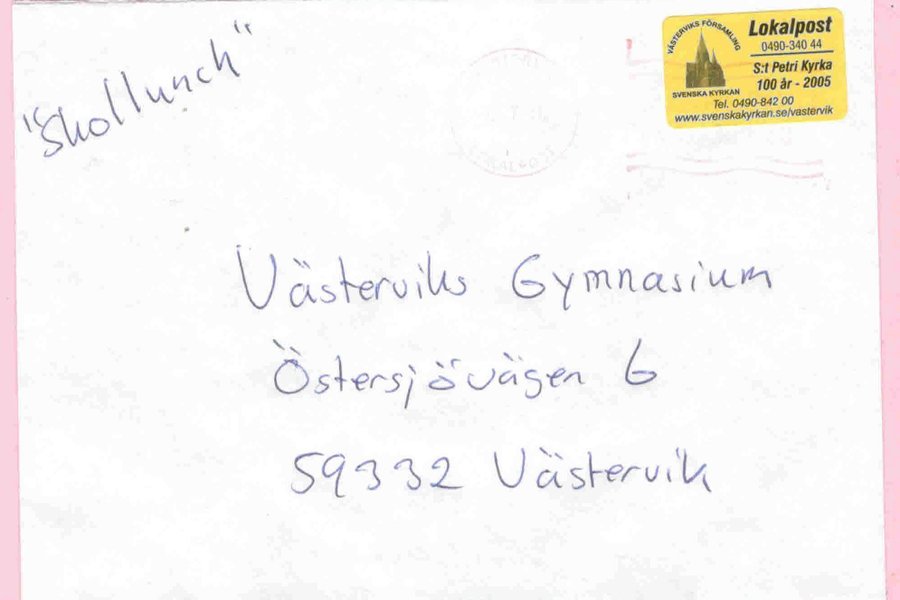 "Skollunch"
VÄSTERVIKS FÖRSAMLING
SVENSKA KYRKAN
Lokalpost
0490-340 44
S:t Petri Kyrka
100 år - 2005
Tel. 0490-842 00
www.svenskakyrkan.se/vastervik
Västerviks Gymnasium
Östersjövägen 6
59332 Västervik